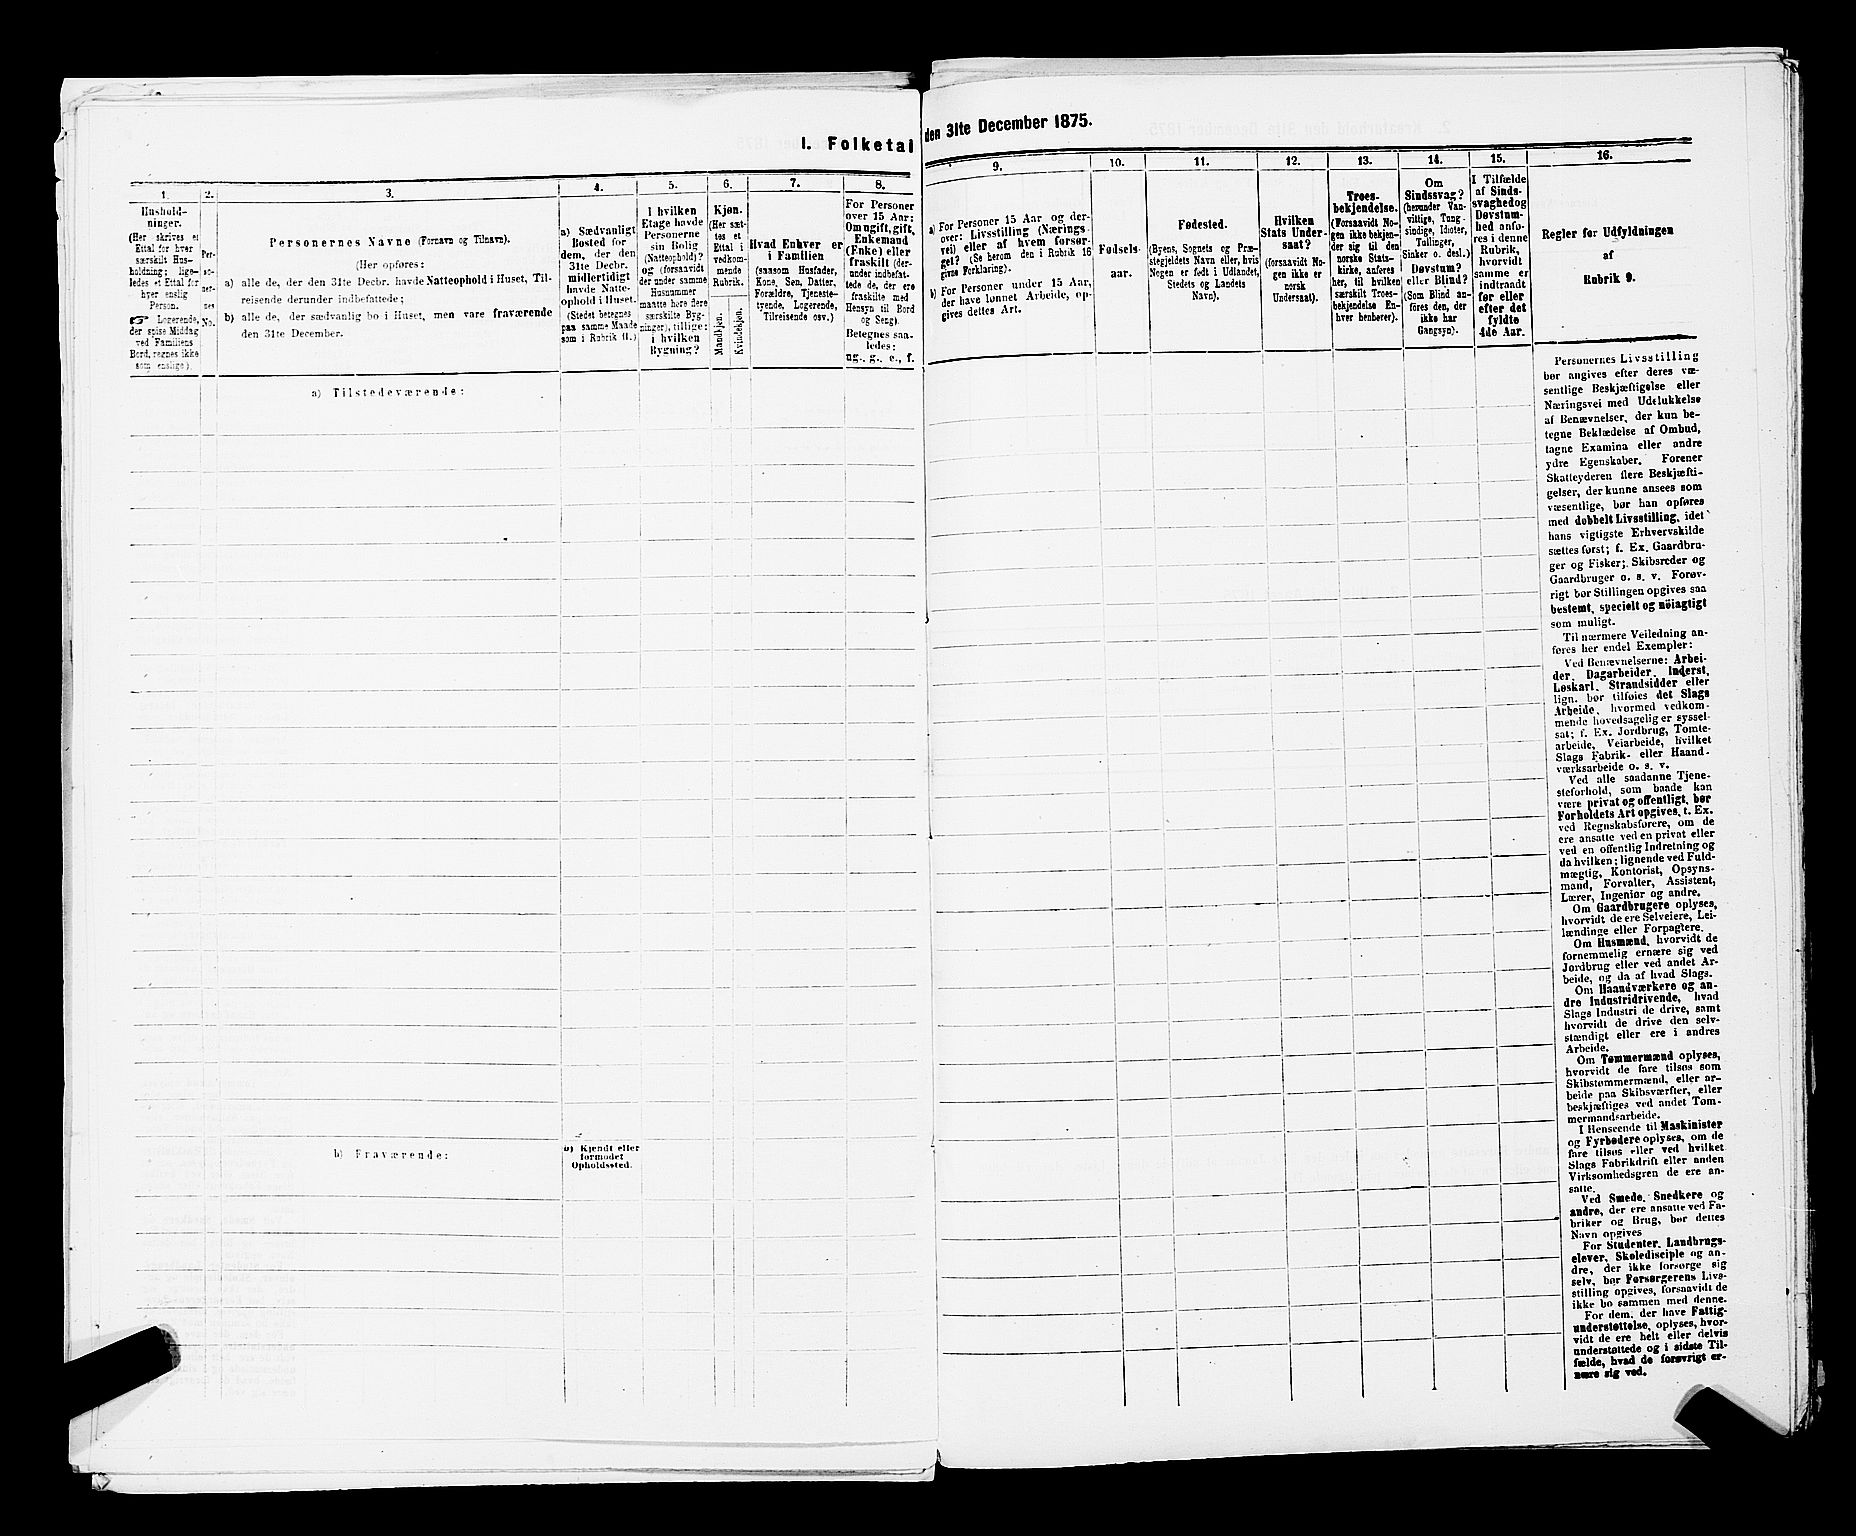 I. Folketal den 31te December 1875.
1.
Hushold-
ninger.
(Her skrives et
Ettal for hver
særskilt Hus-
holdning; lige-
ledes et Ettal for
hver enslig
Person.
☞ Logerende,
der spise Middag
ved Familiens
Bord, regnes ikke
som enslige).
2.
Per-
so-
ner-
nes
No.
3.
Personernes Navne (Fornavn og Tilnavn).
(Her opføres:
a) alle de, der den 31te Decbr. havde Natteophold i Huset, Til-
reisende derunder indbefattede;
b) alle de, der sædvanlig bo i Huset, men vare fraværende
den 31te December.
4.
a) Sædvanligt
Bosted for
dem, der den
31te Decbr.
midlertidigt
havde Natte-
ophold i Huset.
(Stedet betegnes
paa samme Maade
som i Rubrik 11.)
5.
I hvilken
Etage havde
Personerne
sin Bolig
(Natteophold)?
og (forsaavidt
der under samme
Husnummer
maatte høre flere
særskilte Byg-
ninger), tillige:
i hvilken
Bygning?
6.
Kjøn.
(Her sæt-
tes et
Ettal i
vedkom-
mende
Rubrik.
Mandkjøn.
Kvindekjøn.
7.
Hvad Enhver er
i Familien
(saasom Husfader,
Kone, Søn, Datter,
Forældre, Tjeneste-
tyende, Logerende,
Tilreisende osv.)
8.
For Personer
over 15 Aar:
Om ugift, gift,
Enkemand
(Enke) eller
fraskilt (der-
under indbefat-
tede de, der ere
fraskilte med
Hensyn til Bord
og Seng).
Betegnes saa-
ledes:
ug., g., e., f.
9.
a) For Personer 15 Aar og der-
over: Livsstilling (Nærings-
vei) eller af hvem forsør-
get? (Se herom den i Rubrik 16
givne Forklaring).
b) For Personer under 15 Aar,
der have lønnet Arbeide, op-
gives dettes Art.
10.
Fødsels-
aar.
11.
Fødested.
(Byens, Sognets og Præ-
stegjeldets Navn eller, hvis
Nogen er født i Udlandet,
Stedets og Landets
Navn).
12.
Hvilken
Stats Under-
saat?
(forsaavidt No-
gen ikke er
norsk
Undersaat).
13.
Troes-
bekjendelse.
(Forsaavidt No-
gen ikke bekjen-
der sig til den
norske Stats-
kirke, anføres
her, til hvilken
særskilt Troes-
bekjendelse En-
hver henhører).
14.
Om
Sindssvag?
(herunder Van-
vittige, Tung-
sindige, Idioter,
Tullinger,
Sinker o. desl.)
Døvstum?
eller Blind?
(Som Blind an-
føres den, der
ikke har
Gangsyn).
15.
I Tilfælde
af Sinds-
svaghed og
Døvstum-
hed anfø-
res i denne
Rubrik,
hvorvidt
samme er
indtraadt
før eller
efter det
fyldte
4de Aar.
16.
Regler før Udfyldningen
af
Rubrik 9.
a) Tilstedeværende:
b) Fraværende:
b) Kjendt eller
formodet
Opholdssted.
Personernes Livsstilling
bør angives efter deres væ-
sentlige Beskjæftigelse eller
Næringsvei med Udelukkelse
af Benævnelser, der kun be-
tegne Beklædelse af Ombud,
tagne Examina eller andre
ydre Egenskaber. Forener
Skatteyderen flere Beskjæfti-
gelser, der kunne ansees som
væsentlige, bør han opføres
med dobbelt Livsstilling, idet
hans vigtigste Erhvervskilde
sættes først; f. Ex. Gaardbru-
ger og Fisker; Skibsreder og
Gaardbruger o. s. v. Forøv-
rigt bør Stillingen opgives saa
bestemt, specielt og nöiagtigt
som muligt.
Til nærmere Veiledning an-
føres her endel Exempler:
Ved Benævnelserne: Arbei-
der, Dagarbeider, Inderst,
Løskarl, Strandsidder eller
lign. bør tilføies det Slags
Arbeide, hvormed vedkom-
mende hovedsagelig er syssel-
sat; f. Ex. Jordbrug, Tomte-
arbeide, Veiarbeide, hvilket
Slags Fabrik- eller Haand-
værksarbeide o. s. v.
Ved alle saadanne Tjene-
steforhold, som baade kan
være privat og offentligt, bør
Forholdets Art opgives, t. Ex.
ved Regnskabsførere, om de
ere ansatte ved en privat eller
ved en offentlig Indretning og
da hvilken; lignende ved Fuld-
mægtig, Kontorist, Opsyns-
mand, Forvalter, Assistent,
Lærer, Ingeniør og andre.
Om Gaardbrugere oplyses,
hvorvidt de ere Selveiere, Lei-
lændinge eller Forpagtere.
Om Husmænd, hvorvidt de
fornemmelig ernære sig ved
Jordbrug eller ved andet Ar-
beide, og da af hvad Slags.
Om Haandværkere og an-
dre Industridrivende, hvad
Slags Industri de drive, samt
hvorvidt de drive den selv-
stændigt eller ere i andres
Arbeide.
Om Tømmermænd oplyses,
hvorvidt de fare tilsøs som
Skibstømmermænd, eller ar-
beide paa Skibsværfter, eller
beskjæftiges ved andet Tøm-
mermandsarbeide.
I Henseende til Maskinister
og Fyrbødere oplyses, om de
fare tilsøs eller ved hvilket
Slags Fabrikdrift eller anden
Virksomhedsgren de ere an-
satte.
Ved Smede, Snedkere og
andre, der ere ansatte ved Fa-
briker og Brug, bør dettes
Navn opgives
For Studenter, Landbrugs-
elever, Skoledisciple og an-
dre, der ikke forsørge sig
selv, bør Forsørgerens Livs-
stilling opgives, forsaavidt de
ikke bo sammen med denne.
For dem, der have Fattig-
understøttelse, oplyses, hvor-
vidt de ere helt eller delvis
understøttede og i sidste Til-
fælde, hvad de forøvrigt er-
nære sig ved.